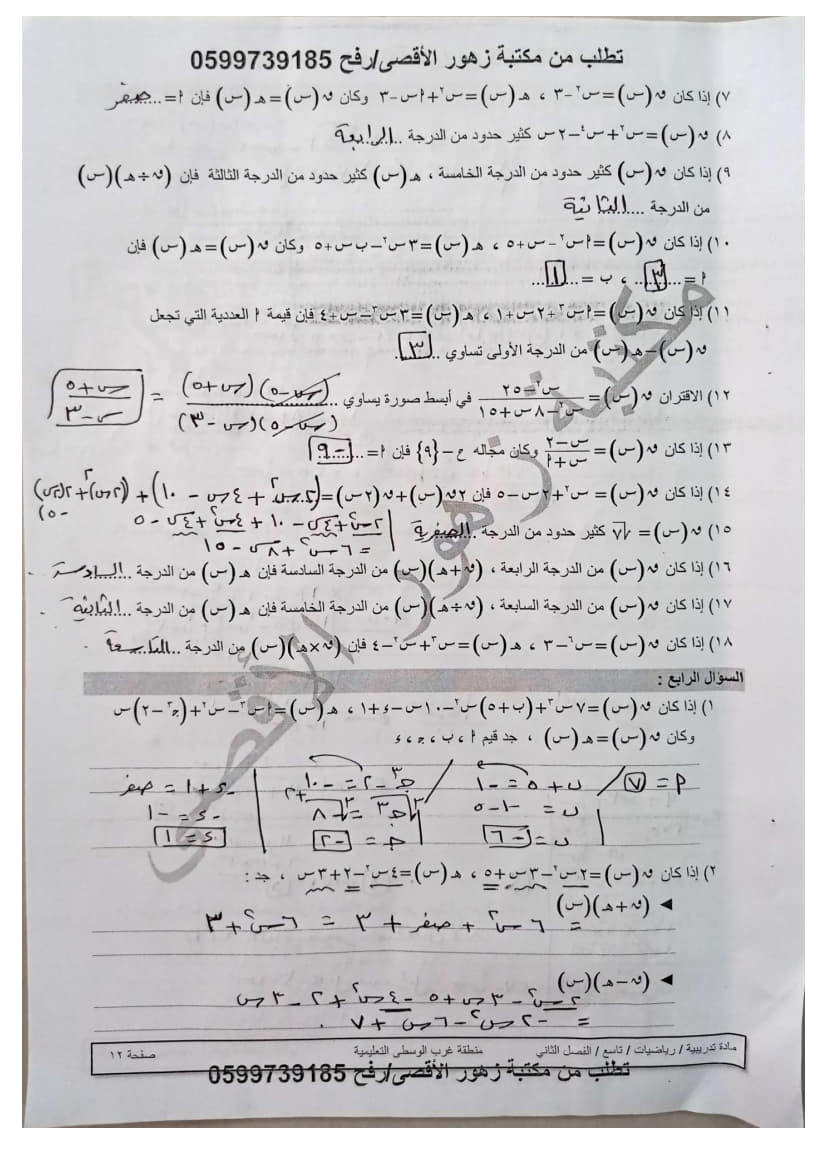 تطلب من مكتبة زهور الأقصى/رفح 0599739185
٧) إذا كان ق(س)=س٢-٣ ، هـ(س)=س٢+أس-٣ وكان ق(س)=هـ(س) فإن أ=...صفر
٨) ق(س)=س٢+س٤-٢س كثير حدود من الدرجة ..الرابعة
٩) إذا كان ق(س) كثير حدود من الدرجة الخامسة ، هـ(س) كثير حدود من الدرجة الثالثة فإن (ق÷هـ)(س)
من الدرجة ....الثانية
١٠) إذا كان ق(س)=أس٢-س+٥ ، هـ(س)=٣س٢-ب س+٥ وكان ق(س)=هـ(س) فإن
أ =...٣... ، ب =...١...
١١) إذا كان ق(س)=أس٢+٢س+١ ، هـ(س)=٣س٢-س+٤ فإن قيمة أ العددية التي تجعل
ق(س)-هـ(س) من الدرجة الأولى تساوي ..٣..
١٢) الاقتران ق(س)= (س٢-٢٥)/(س٢-٨س+١٥) في أبسط صورة يساوي ... (س-٥)(س+٥)/(س-٥)(س-٣) = (س+٥)/(س-٣)
١٣) إذا كان ق(س)= (س-٢)/(س+أ) وكان مجاله ح-{٩} فإن أ=...-٩
١٤) إذا كان ق(س)= س٢+٢س-٥ فإن ٢ق(س)+ق(٢س)=(٢س٢+٤س-١٠)+((٢س)٢+٢(٢س)-٥)
٢س٢+٤س-١٠+٤س٢+٤س-٥
= ٦س٢+٨س-١٥
١٥) ق(س)= √٧ كثير حدود من الدرجة ..الصفرية
١٦) إذا كان ق(س) من الدرجة الرابعة ، (ق+هـ)(س) من الدرجة السادسة فإن هـ(س) من الدرجة ..السادسة
١٧) إذا كان ق(س) من الدرجة السابعة ، (ق÷هـ)(س) من الدرجة الخامسة فإن هـ(س) من الدرجة ..الثانية
١٨) إذا كان ق(س)=س٦-٣ ، هـ(س)=س٣+س٢-٤ فإن (ق×هـ)(س) من الدرجة ..التاسعة .
السؤال الرابع :
١) إذا كان ق(س)=٧س٣+(ب+٥)س٢-١٠س-ء+١ ، هـ(س)=أس٣-س٢+(جـ٣-٢)س
وكان ق(س)=هـ(س) ، جد قيم أ ، ب ، جـ ، ء
أ = ٧ / ب+٥=-١ / جـ٣-٢=-١٠ | -ء+١=صفر
ب = -١-٥ | جـ٣=-٨ | -ء=-١
ب=-٦ | جـ=-٢ | ء=١
٢) إذا كان ق(س)=٢س٢-٣س+٥ ، هـ(س)=٤س٢-٢+٣س ، جد:
◄ (ق+هـ)(س)
= ٦س٢ + صفر + ٣ = ٦س٢+٣
◄ (ق-هـ)(س)
٢س٢-٣س+٥-٤س٢+٢-٣س
= -٢س٢-٦س+٧ .
مادة تدريبية / رياضيات / تاسع / الفصل الثاني منطقة غرب الوسطى التعليمية صفحة ١٢
تطلب من مكتبة زهور الأقصى/رفح 0599739185
مكتبة زهور الأقصى